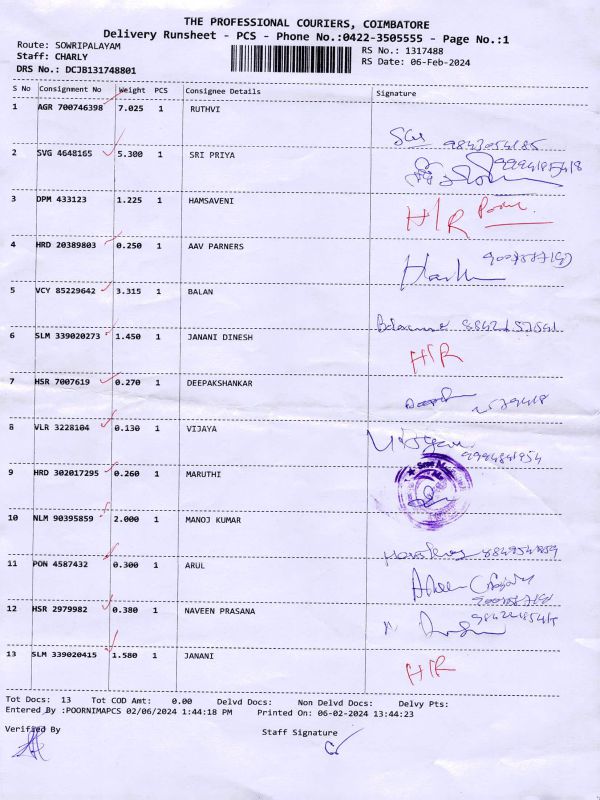 THE PROFESSIONAL COURIERS, COIMBATORE
Delivery Runsheet - PCS - Phone No.:0422-3505555 - Page No.:1
Route: SOWRIPALAYAM
Staff: CHARLY
DRS No.: DCJB131748801
RS No.: 1317488
RS Date: 06-Feb-2024
S No Consignment No Weight PCS Consignee Details Signature
1 AGR 700746398 7.025 1 RUTHVI
9843054185
2 SVG 4648165 5.300 1 SRI PRIYA
3 DPM 433123 1.225 1 HAMSAVENI
H/R
4 HRD 20389803 0.250 1 AAV PARNERS
5 VCY 85229642 3.315 1 BALAN
6 SLM 339020273 1.450 1 JANANI DINESH
H/R
7 HSR 7007619 0.270 1 DEEPAKSHANKAR
8 VLR 3228104 0.130 1 VIJAYA
9 HRD 302017295 0.260 1 MARUTHI
10 NLM 90395859 2.000 1 MANOJ KUMAR
11 PON 4587432 0.300 1 ARUL
12 HSR 2979982 0.380 1 NAVEEN PRASANA
13 SLM 339020415 1.580 1 JANANI
H/R
Tot Docs: 13 Tot COD Amt: 0.00 Delvd Docs: Non Delvd Docs: Delvy Pts:
Entered By :POORNIMAPCS 02/06/2024 1:44:18 PM Printed On: 06-02-2024 13:44:23
Verified By
Staff Signature